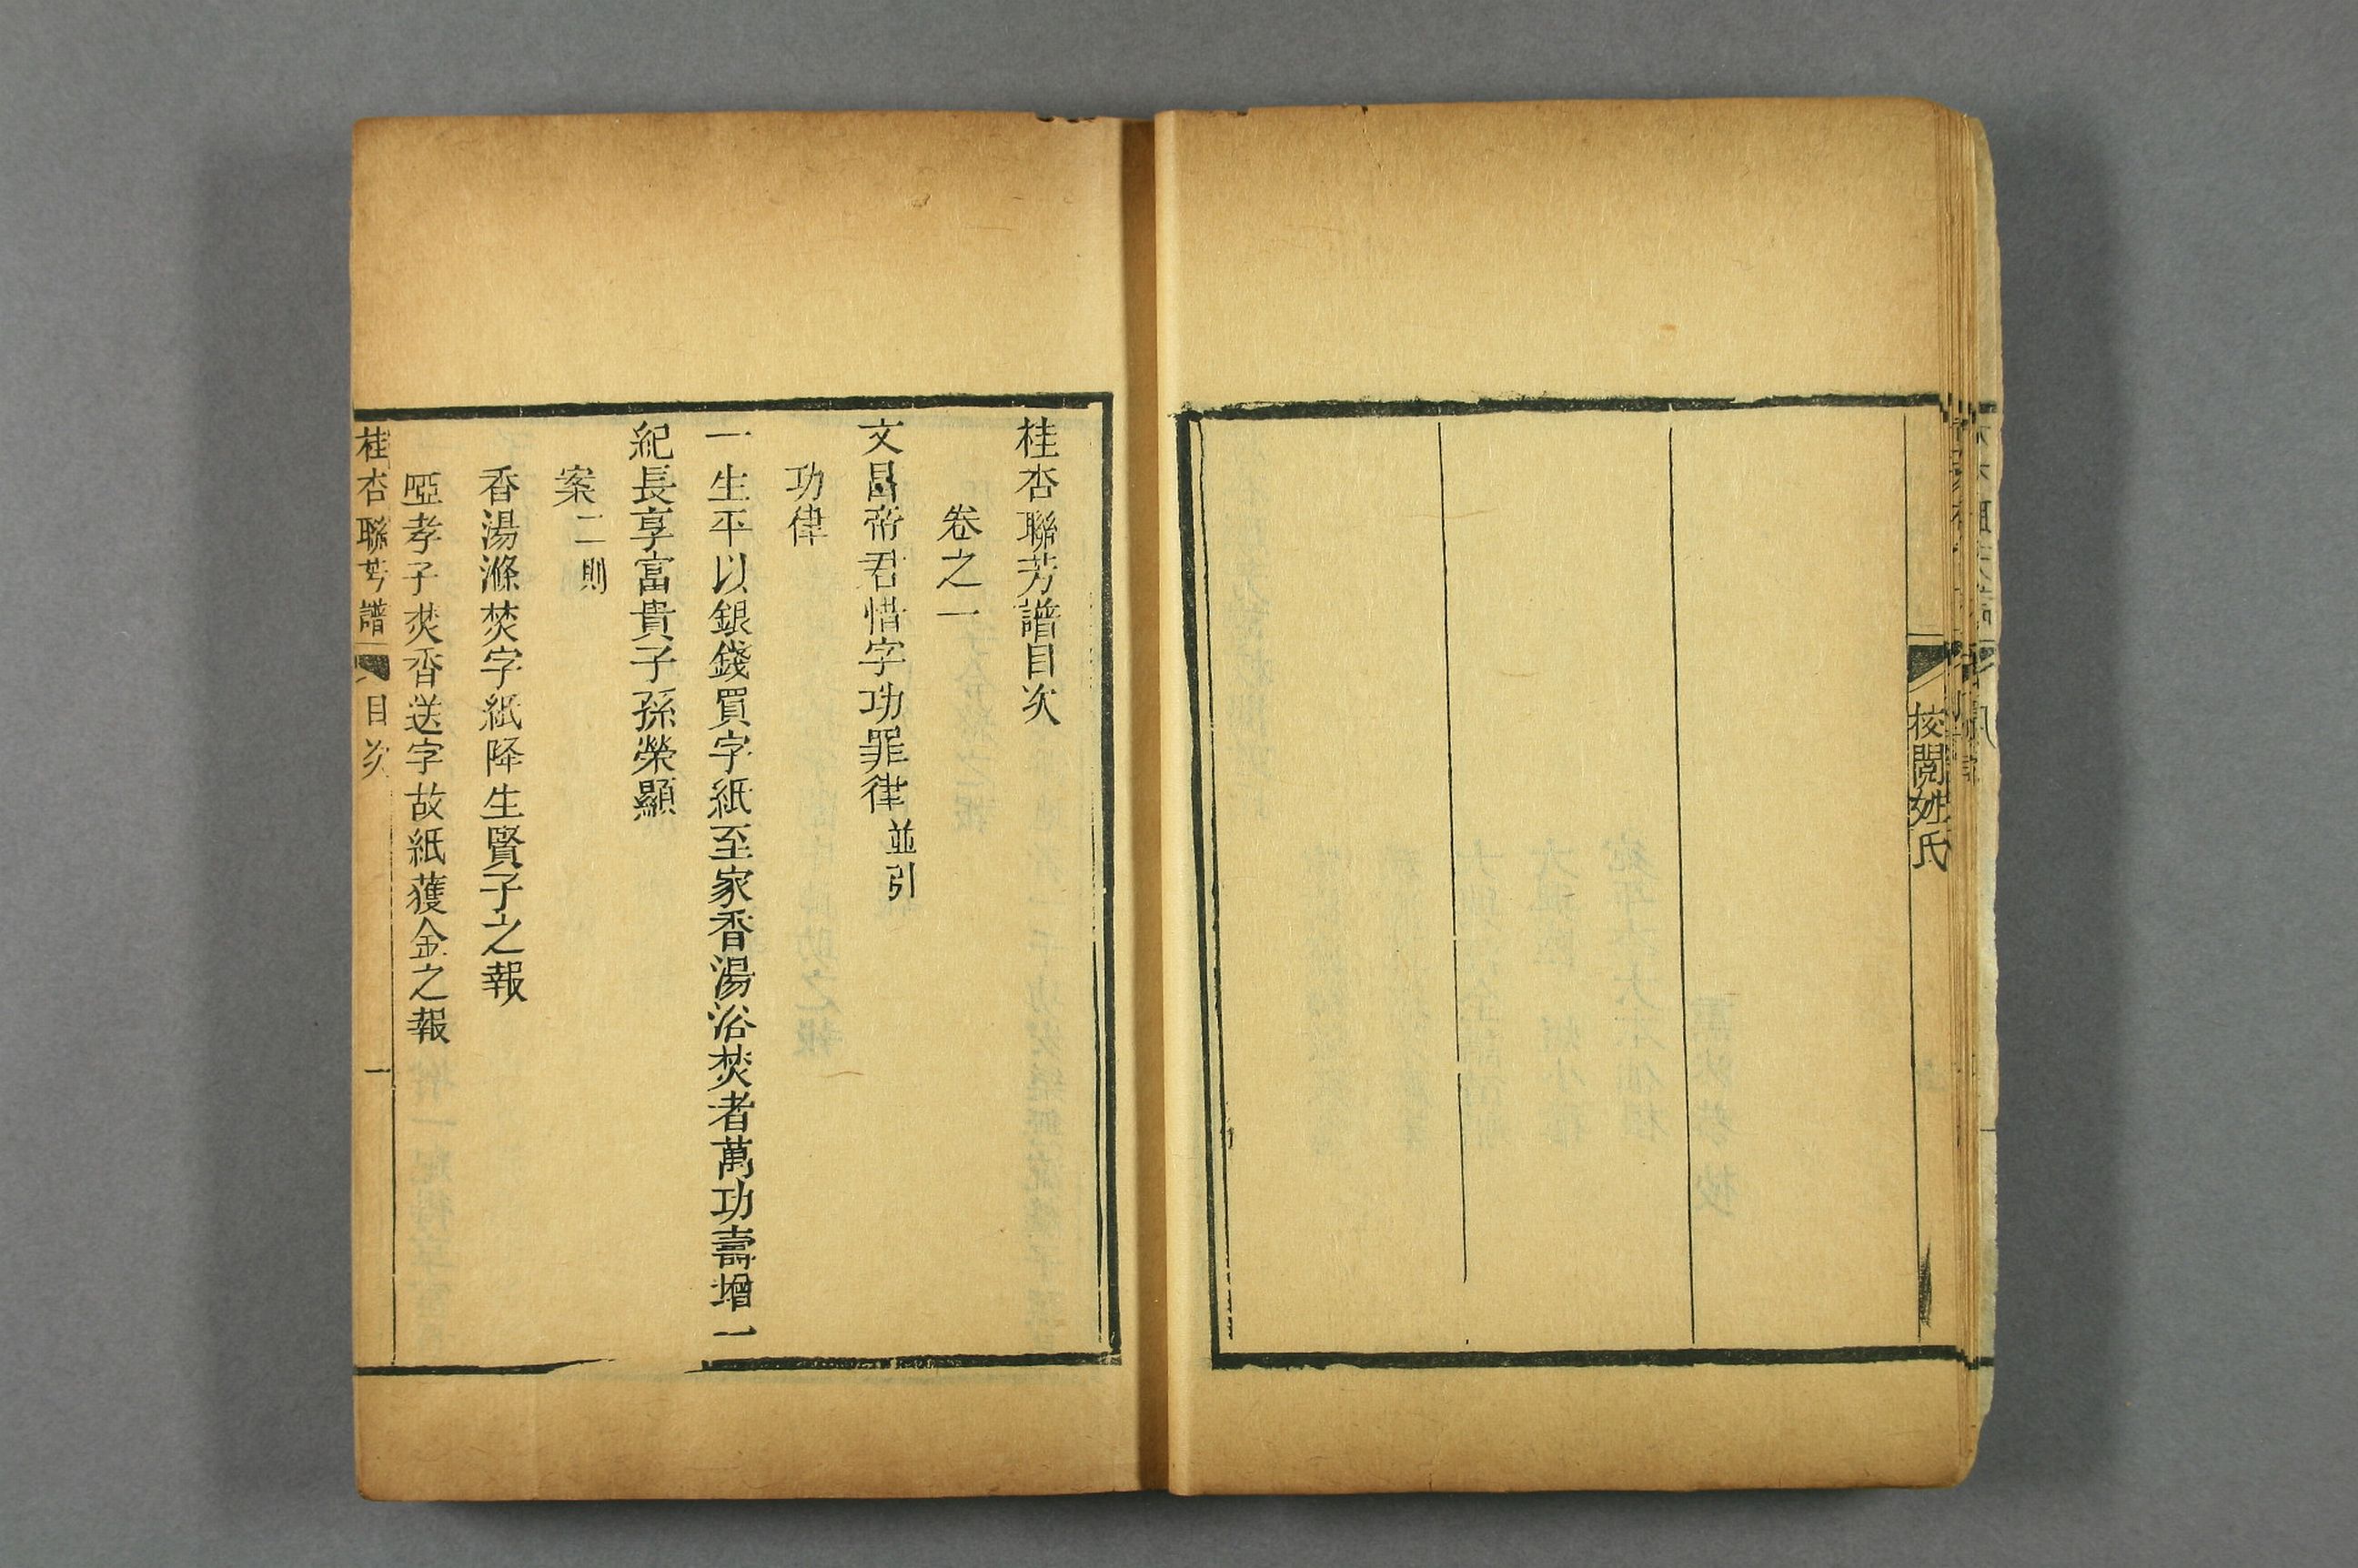 校閱姓氏
桂杏聯芳譜目次
卷之一
文昌帝君惜字功罪律並引
功律
一生平以銀錢買字紙至家香湯浴焚者萬功壽增一
紀長享富貴子孫榮顯
案二則
香湯滌焚字紙降生賢子之報
啞孝子焚香送字故紙獲金之報
桂杏聯芳譜 目次 一